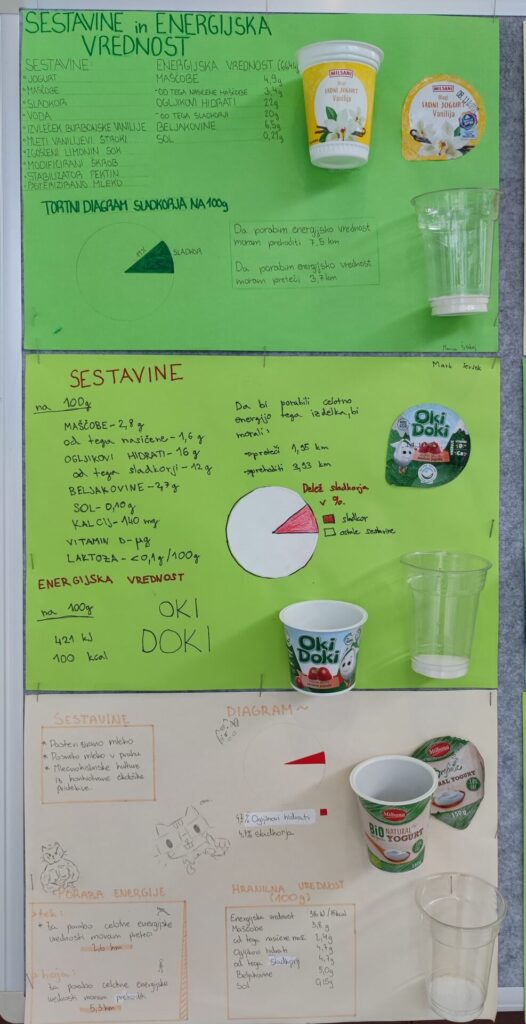 SESTAVINE in ENERGIJSKA
VREDNOST
SESTAVINE:
• JOGURT
• MAŠČOBE
• SLADKOR
• VODA
• IZVLEČEK BURBONSKE VANILIJE
• MLETI VANILIJEVI STROKI
• ZGOŠČENI LIMONIN SOK
• MODIFICIRANI ŠKROB
• STABILIZATOR PEKTIN
• PASTERIZIRANO MLEKO
ENERGIJSKA VREDNOST
MAŠČOBE 4,9g
- OD TEGA NASIČENE MAŠČOBE 3,4g
OGLJIKOVI HIDRATI 22g
- OD TEGA SLADKORJI 20g
BELJAKOVINE 6,5g
SOL
MILSANI
SADNI JOGURT
Vanilija
MILSANI
SADNI JOGURT
Vanilija
TORTNI DIAGRAM SLADKORJA NA 100g
SLADKOR
Da porabim energijsko vrednost
moram prehoditi 7,5 km
Da porabim energijsko vrednost
moram preteči 3,7 km
SESTAVINE
na 100g
MAŠČOBE - 2,8 g
od tega nasičene - 1,6 g
OGLJIKOVI HIDRATI - 16 g
od tega sladkorji - 12 g
BELJAKOVINE - 2,7 g
SOL - 0,10 g
KALCIJ - 140 mg
VITAMIN D - µg
LAKTOZA - < 0,1 g/100g
Da bi porabili celotno
energijo tega izdelka, bi
morali:
- preteči 1,95 km
- prehoditi 3,93 km
Delež sladkorja
v %.
sladkor
ostale sestavine
Oki
Doki
ENERGIJSKA VREDNOST
na 100g
421 kJ
100 kcal
OKI
DOKI
Oki
Doki
SESTAVINE
* Pasterizirano mleko
* Posneto mleko v prahu
* Mlečnokislinske kulture
iz kontrolirane ekološke
pridelave.
DIAGRAM~
4,7% Ogljikovi hidrati
4,7% sladkorja
Milbona
BIO NATURAL
YOGURT
Milbona
Organic
NATURAL YOGURT
150g
PORABA ENERGIJE
tek:
* Za porabo celotne energijske
vrednosti moram preteči
2,6 km
hoja:
Za porabo celotne energijske
vrednosti moram prehoditi
5,3 km
HRANILNA VREDNOST
(100g)
Energijska vrednost
Maščobe 3,8 g
od tega nasičene maš. 2,4g
Ogljikovi hidrati 4,7g
od tega sladkorji 4,7g
Beljakovine 5,0g
Sol 0,15g